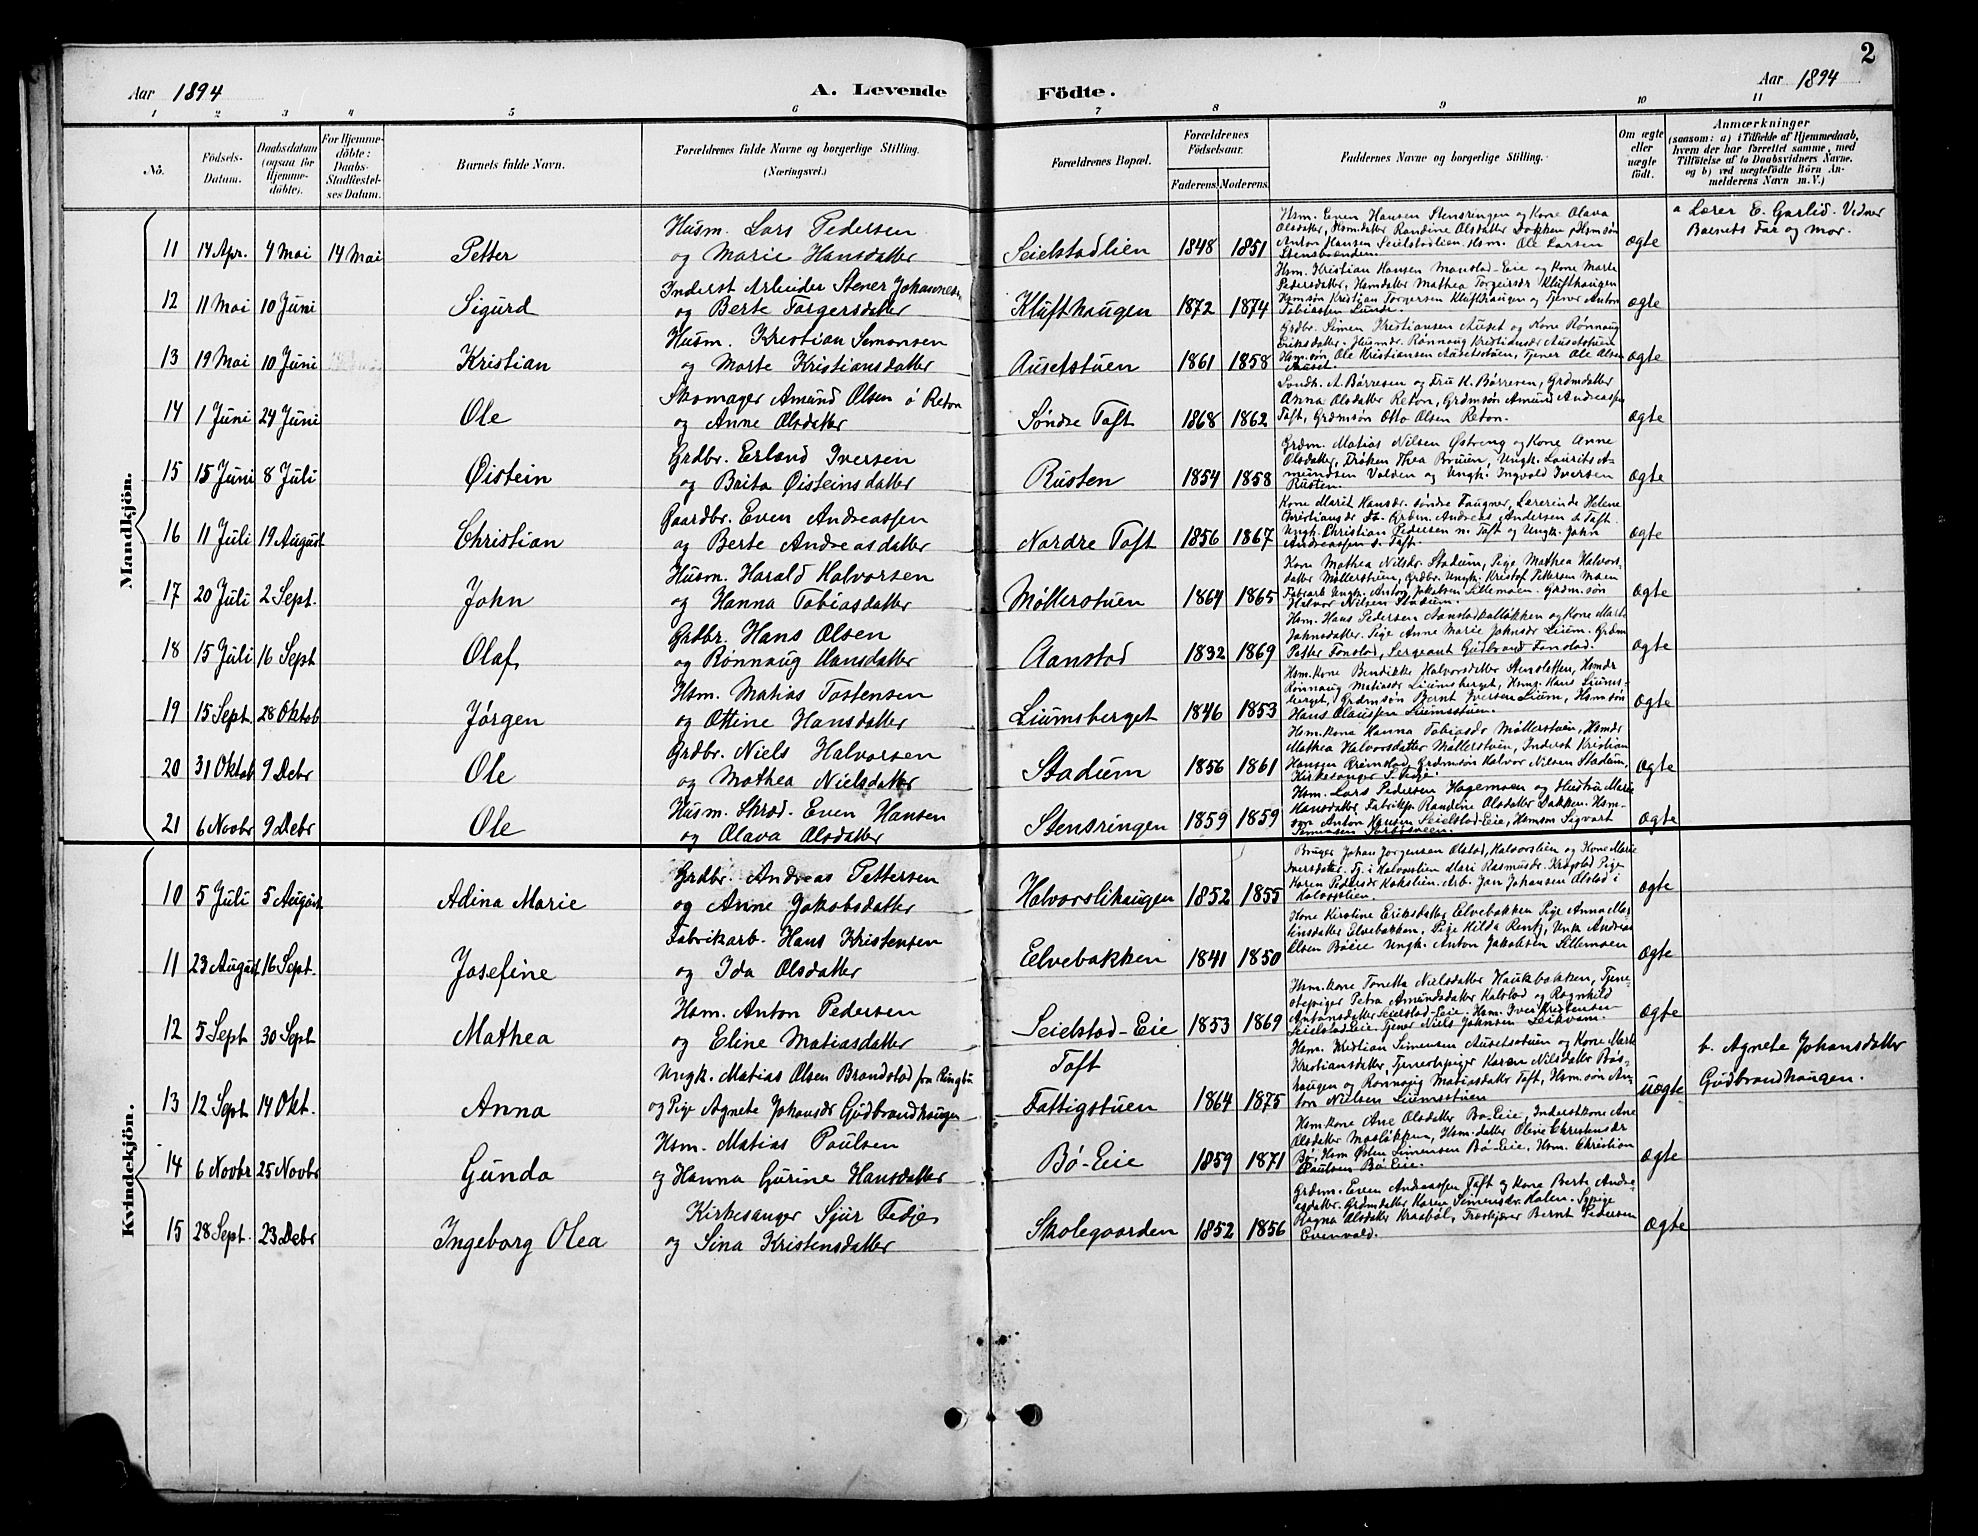 2
Aar 1894
A. Levende
Födte.
Aar 1894
1 2 3 4 5 6 7 8 9 10 11
No.
Födsels-Datum.
Daabsdatum (ogsaa for Hjemme-döbte).
For Hjemme-döbte: Daabs Stadfæstel-ses Datum.
Barnets fulde Navn.
Forældrenes fulde Navne og borgerlige Stilling.
(Næringsvei.)
Forældrenes Bopæl.
Forældrenes Födselsaar.
Faderens. Moderens.
Faddernes Navne og borgerlige Stilling.
Om ægte eller uægte födt.
Anmærkninger
(saasom: a) i Tilfælde af Hjemmedaab,
hvem der har forrettet samme, med
Tilföielse af to Daabsvidners Navne.
og b) ved uægtefödte Börn An-
melderens Navn m. V.)
Mandkjön.
11 14 Apr. 4 Mai 14 Mai Petter
Husm. Lars Pedersen
og Marie Hansdatter
Seielstadlien 1848 1851
Hsm. Even Hansen Stensringen og Kone Olava
Olsdatter, Hsmdatter Randine Olsdatter Dokken, Hsmsøn
Anton Hansen Seielstadlien, Hsm. Ole Larsen
ægte
a Lærer E. Garlid. Vidner
Barnets Far og Mor.
12 11 Mai 10 Juni Sigurd
Inderst Arbeider Stener Johannesen
og Berte Torgersdatter
Klufthaugen 1872 1874
Hsm. Kristian Hansen Manstad-Eie og Kone Marte
Pedersdatter, Hsmdatter Mathea Torgersdr Klufthaugen
Hsmsøn Kristian Torgersen Klufthaugen og Tjener Anton
Tobiassen Lunde.
ægte
13 19 Mai 10 Juni Kristian
Husm. Kristian Simensen
og Marte Kristiansdatter
Ausetstuen 1861 1858
Grdbr. Simen Kristiansen Auset og Kone Rønnaug
Eriksdatter. Husmdr. Rønnaug Kristiansdr Ausetstuen
Hsm.søn Ole Kristiansen Ausetstuen, Tjener Ole Olsen
Auset.
ægte
14 1 Juni 24 Juni Ole
Skomager Amund Olsen ö Reton
og Anne Olsdatter
Søndre Toft 1868 1862
Landh. A. Børresen og Fru K. Børresen, Grdmdatter
Anna Olsdatter Reton, Grdmsøn Amund Andreassen
Toft, Grdmsøn Otto Olsen Reton.
ægte
15 15 Juni 8 Juli Øistein
Grdbr. Erland Iversen
og Brita Øisteinsdatter
Rusten 1854 1858
Grdm. Matias Nilsen Østreng og Kone Anne
Olsdatter, Frøken Thea Bruun, Ungk. Laurits A-
mundsen Volden og Ungk. Ingvald Iversen
Rusten.
ægte
16 11 Juli 19 August Christian
Gaardbr. Even Andreassen
og Berte Andreasdatter
Nordre Toft 1856 1867
Kone Marit Hansdr. søndre Faugner, Lærerinde Helene
Christiansdr Bø. Grbm. Andreas Andersen s. Toft
Ungk. Christian Pedersen n. Toft og Ungk. John
Andreassen s. Toft.
ægte
17 20 Juli 2 Sept. John
Husm. Harald Halvorsen
og Hanna Tobiasdatter
Møllerstuen 1864 1865
Kone Mathea Nilsdr. Stadum, Pige Mathea Halvors-
datter Møllerstuen, Grdbr. Ungk. Kristof Pettersen Moen
Fabrark Ungk. Anton Jakobsen Lillemoen. Grdm.søn
Halvor Nilsen Stadum.
ægte
18 15 Juli 16 Sept Olaf
Grdbr. Hans Olsen
og Rønnaug Hansdatter
Aanstad 1832 1869
Hsm. Hans Pedersen Aanstadkalløkken og Kone Marit
Johnsdatter. Pige Anne Marie Johnsdr Lium. Grdm
Petter Fonstad, Sergeant Gudbrand Fonstad.
ægte
19 15 Sept 28 Oktob Jørgen
Hsm. Matias Tostensen
og Ottine Hansdatter
Liumsberget 1846 1853
Hsm.Kone Bendikke Halvorsdatter Amsletten, Hsmdr
Rønnaug Matiasdr Liumsberget, Hsm. Hans Liums-
berget, Grdmsøn Bernt Iversen Lium, Hsmsøn
Hans Olaussen Liumsstuen.
ægte
20 31 Oktob 9 Debr Ole
Grdbr. Niels Halvorsen
og Mathea Nielsdatter
Stadum 1856 1861
Hsm.Kone Hanna Tobiasdr Møllerstuen, Hsmdr
Mathea Halvorsdatter Møllerstuen, Inderst Kristian
Hansen Breimstad, Grdmsøn Halvor Nilsen Stadum,
Kirkesanger S. Fedje.
ægte
21 6 Novbr 9 Debr Ole
Husm. Skræd. Even Hansen
og Olava Olsdatter
Stensringen 1859 1859
Hsm. Lars Pedersen Hagemoen og Hustru Marie
Hansdatter. Fabrikp. Randine Olsdatter Dokken. Hsm-
søn Anton Hansen Seielstad-Eie, Hsmsøn Sigvart
ægte
Kvindekjön.
10 5 Juli 5 August Adina Marie
Grdbr. Andreas Pettersen
og Anne Jakobsdatter
Halvorslihaugen 1852 1855
Bruger Johan Jørgensen Olstad, Halvorslien og Kone Marie
Iversdatter. Tj. i Halvorslien Mari Rasmusdr. Krogstad Pige
Karen Pedersdr Kokslien. Arb. Jan Johansen Olstad i
Halvorslien.
ægte
11 23 August 16 Sept. Josefine
Fabrikarb. Hans Kristensen
og Ida Olsdatter
Elvebakken 1841 1850
Kone Kirstine Eriksdatter Elvebakken Pige Anna Mar-
tinsdatter Elvebakken, Pige Hilda Rentz, Unk Andreas
Olsen Bøeie Ungk. Anton Jakobsen Lillemoen
ægte
12 5 Sept 30 Sept Mathea
Hsm. Anton Pedersen
og Eline Matiasdatter
Seielstad-Eie 1853 1869
Hsm.Kone Tonetta Nielsdatter Haukbakken, Tjene-
stepiger Petra Amundsdatter Kalstad og Ragnhild
Antonsdatter Seielstad-Eie. Hsm. Iver Kristensen
Seielstad-Eie. Tjener Niels Johnsen Leikvam.
ægte
13 12 Sept 14 Okt. Anna
Ungk. Matias Olsen Brandstad fra Ringbu
og Pige Agnete Johansdr Gudbrandhaugen
Toft
Fattigstuen 1864 1875
Hsm. Kristian Simensen Ausetstuen og Kone Marte
Kristiansdatter, Tjenestepiger Karen Nilsdatter Bøs-
haugen og Rønnaug Matiasdatter Toft, Hsm.søn An-
ton Nielsen Liumsstuen
uægte
b. Agnete Johansdatter
Gudbrandhaugen.
14 6 Novbr 25 Novbr Gunda
Hsm. Matias Paulsen
og Hanna Gurine Hansdatter
Bö-Eie 1859 1871
Hsm.Kone Ane Olsdatter Bø-Eie, Inderstkone Ane
Olsdatter Moslykken, Hsm.datter Oline Christensdr
Bø, Hsm Østen Simensen Bø-Eie, Hsm. Christian
Paulsen Bø-Eie.
ægte
15 28 Sept. 23 Debr Ingeborg Olea
Kirkesanger Sjur Fedje
og Sina Kristensdatter
Skolegaarden 1852 1856
Grdm. Even Andreassen Toft og Kone Berte Andre-
asdatter. Grdmdatter Karen Simensdr. Kolen. Sypige
Ragna Olsdatter Kraabøl, Træskjærer Bernt Pedersen
Evenvold.
ægte